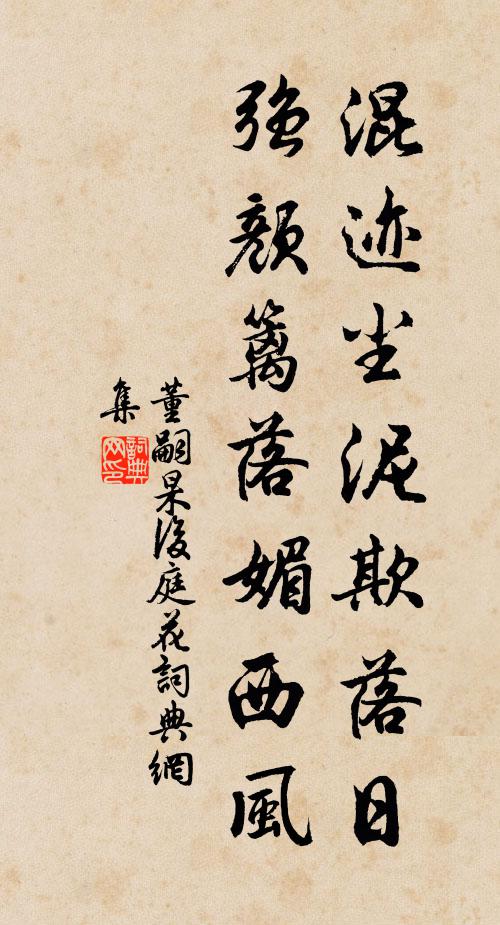 混迹尘泥欺落日
强颜篱落媚西風
董嗣杲後庭花詞典網
集
詞典网印